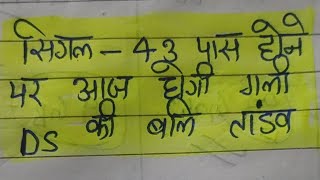 सिंगल - 43 पास होने
पर आज होगी गली
DS की बलि तांडव